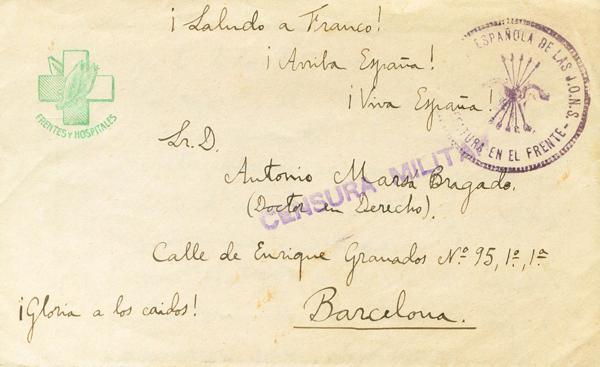 ¡Saludo a Franco!
¡Arriba España!
¡Viva España!
ESPAÑOLA DE LAS J.O.N.S.
EN EL FRENTE
FRENTES Y HOSPITALES
Sr. D.
Antonio Marsá Bragado.
(Doctor en Derecho).
CENSURA MILITAR
Calle de Enrique Granados Nº 95, 1º, 1ª
¡Gloria a los caidos!
Barcelona.